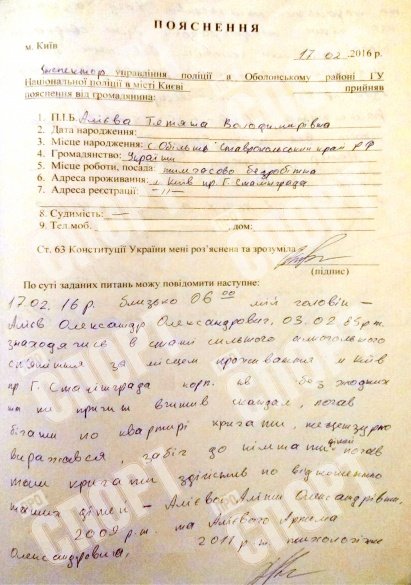 ПОЯСНЕННЯ
м. Київ
17 02 2016 р.
Інспектор управління поліції в Оболонському районі ГУ
Національної поліції в місті Києві прийняв
пояснення від громадянина:
1. П.І.Б. Алієва Тетяна Володимирівна
2. Дата народження:
3. Місце народження: Ставропольський край РФ
4. Громадянство: України
5. Місце роботи, посада: тимчасово безробітна
6. Адреса проживання: м. Київ пр. Г. Сталінграда
7. Адреса реєстрації: -//-
8. Судимість: —
9. Тел.моб. , дом:
Ст. 63 Конституції України мені роз'яснена та зрозуміла
(підпис)
По суті заданих питань можу повідомити наступне:
17.02.16 р. близько 06 00 мій головік –
Алієв Олександр Олександрович, 03.02.85 р.н.
знаходячись в стані сильного алкогольного
сп'яніння за місцем проживання м Київ
пр Г. Сталінграда корп. кв без жодних
на те причин вчинив скандал, почав
бігати по квартирі кричати, нецензурно
виражався забіг до кімнати дітей почав
там кричати здійснив по відношенню
наших дітей – Алієвої Аліни Олександрівни,
2009 р.н. та Алієвого Артема
Олександровича, 2011 р.н. психологічне
ПРО СПОРТ